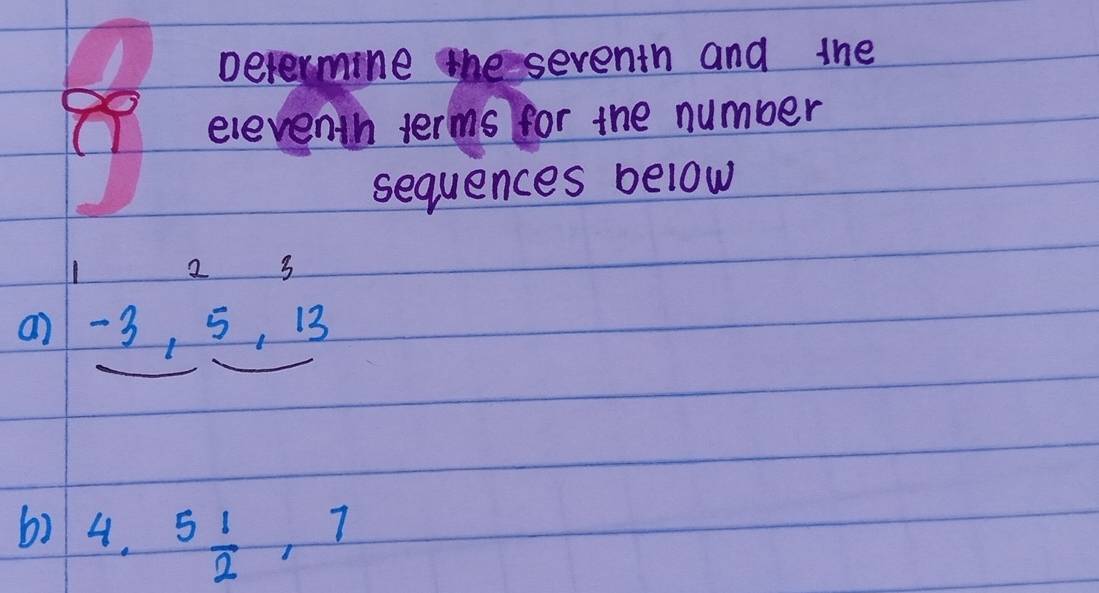 Determine the seventh and the
eleventh terms for the number
sequences below
1 2 3
a) -3, 5, 13
b) 4, 5 1/2, 7